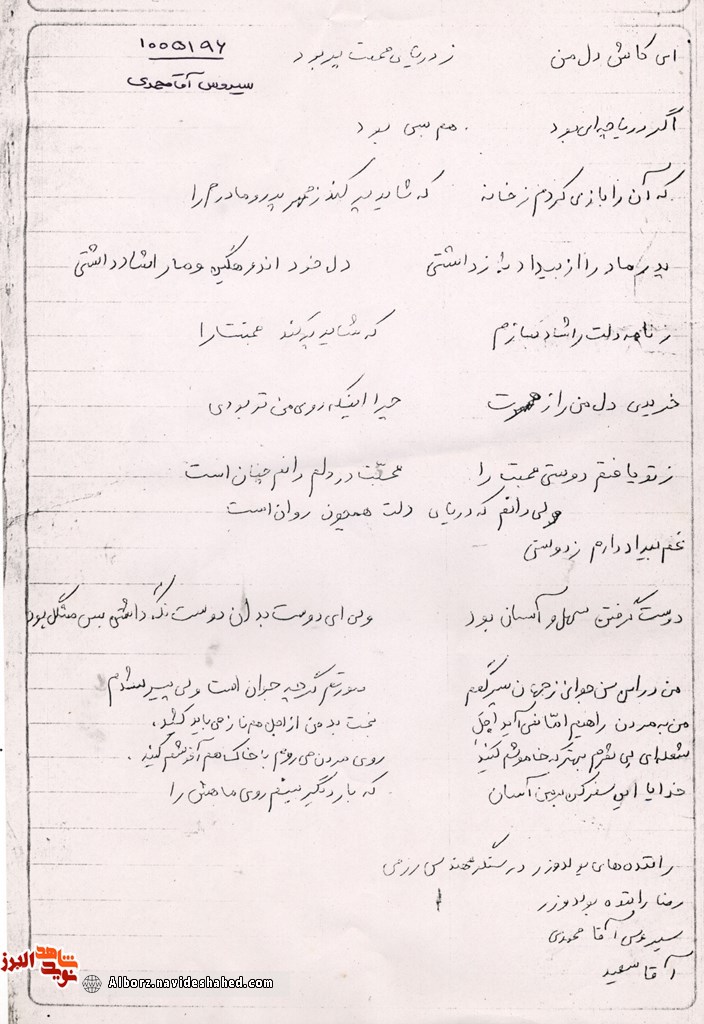 ۱۰۰۵۱۹۶
سیروس آقامحمدی
ای کاش دل من ز دریای محبت پر بود
اگر دریاچه‌ای بود هم بسی بود
که آن را بازی کردم ز خانه که شاید پر کند ز مهر پدر و مادرم را
پدر مادر را از بیداد باز داشتی دل خود اندوهگین و ما را شاد داشتی
ز نامه دلت را شاد سازم که شاید پر کند محبتت را
خریدی دل من را از چرا اینکه روی من تو بودی
ز تو یافتم دوستی محبت را محبت در دلم دانم چنان است
ولی دانم که دریای دلت همچون روان است
غم بیداد دارم ز دوستی
دوست گرفتن سهل و آسان بود ولی ای دوست بدان دوست نگه داشتن بس مشکل بود
من در این سن جوانی ز جهان سیر شدم صورتم گرچه جوان است ولی پیر شدم
من به مردن راضیم اما نمی‌آید اجل بخت بد من از اجل هم ناز می‌باید کشید
شعله‌ای بی نفرم بهتر که خاموشم کنید روی مردن می‌روم با خاک هم آغوشم کنید.
خدایا این سفر کن بر من آسان که بار دیگر بینم روی ماهش را
راننده‌های بولدوزر در سنگر مهندسی رزمی
رضا راننده بولدوزر
سیروس آقا محمدی
آقا سعید
شاهد نوید البرز
Alborz.navideshahed.com